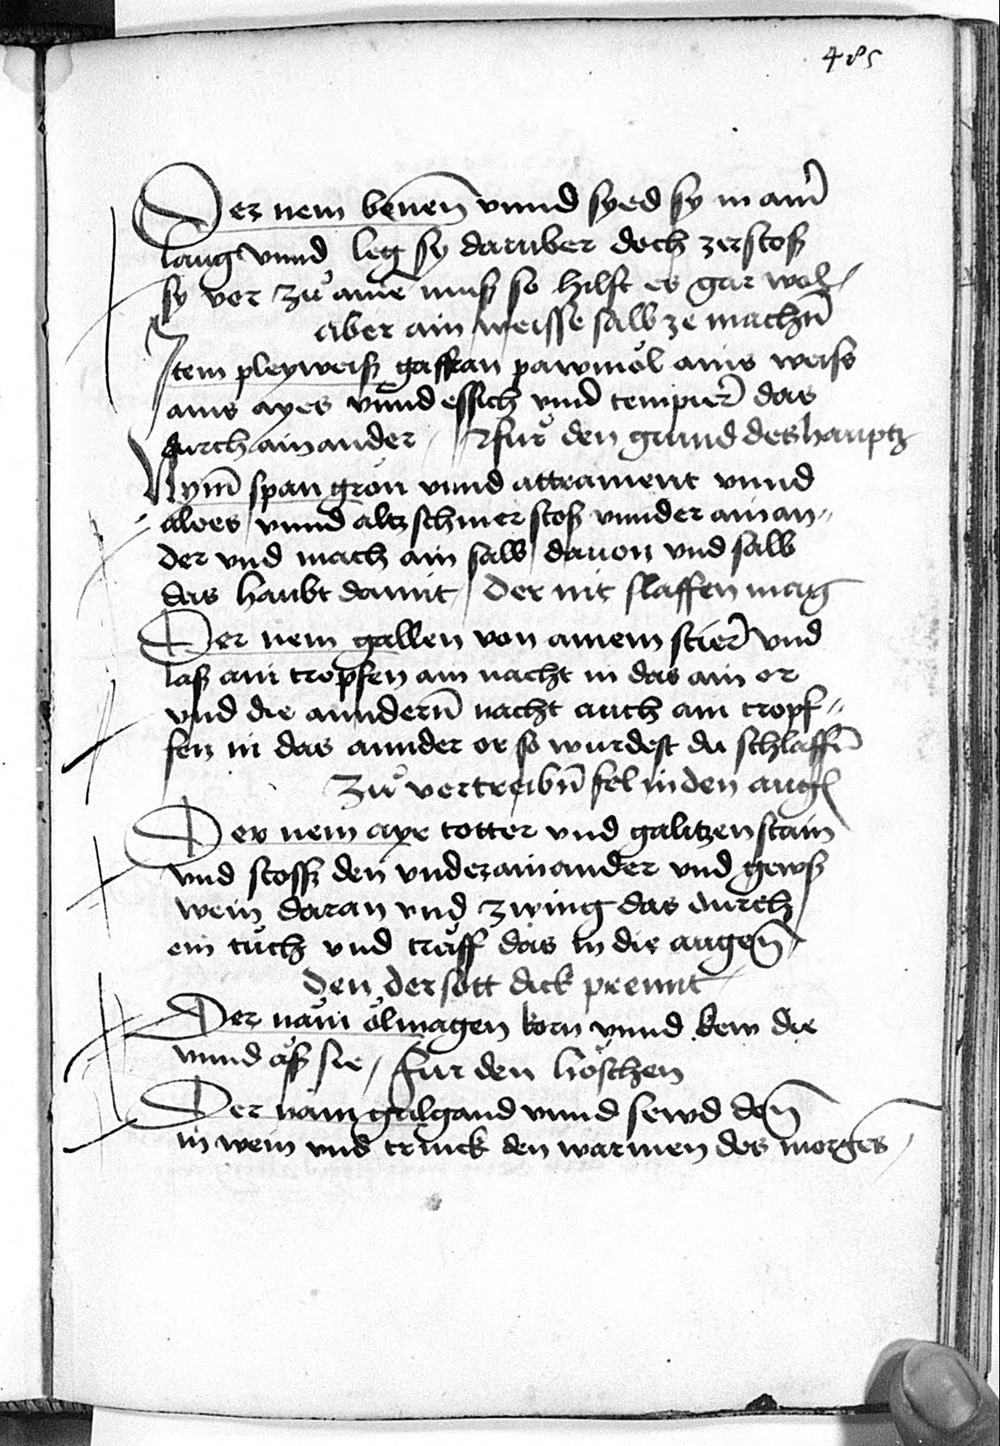 485
Der nem bonen vnnd syed sy in ainer
laug vnnd leg sy daruber doch zerstoß
sy vor zu aine muß so hilfft es gar wol
aber ain weisse salb ze machn
Item pleyweiß gaffran pawmöl ains weiss
ains ayes vnnd essich vnd tempier das
durch ainander / fur den grind des hauptz
Nym span grön vnnd attrament vnnd
aloes vnnd altz schmer stoß vnnder ainan=
der vnd mach ain salb dauon vnd salb
das haubt damit / Der nit slaffen mag
Der nem gallen von ainem stier vnd
laß ain tropfen ain nacht in das ain or
vnd die anndern nacht auch ain tropf=
fen in das annder or so wurdest du schlaffn
Zu vertreibn fel in den augen
Der nem ayr totter vnd galitzenstain
vnd stoss den vnderainander vnd geuß
wein daran vnd zwing das durch
ein tuch vnd träff das in die augen
Den der sött dick prennt
Der näm ölmagen korn vnnd kew die
vnnd äß sie / Fur den höschen
Der näm galgand vnnd sewd den
in wein vnd trinck den warmen des morgens